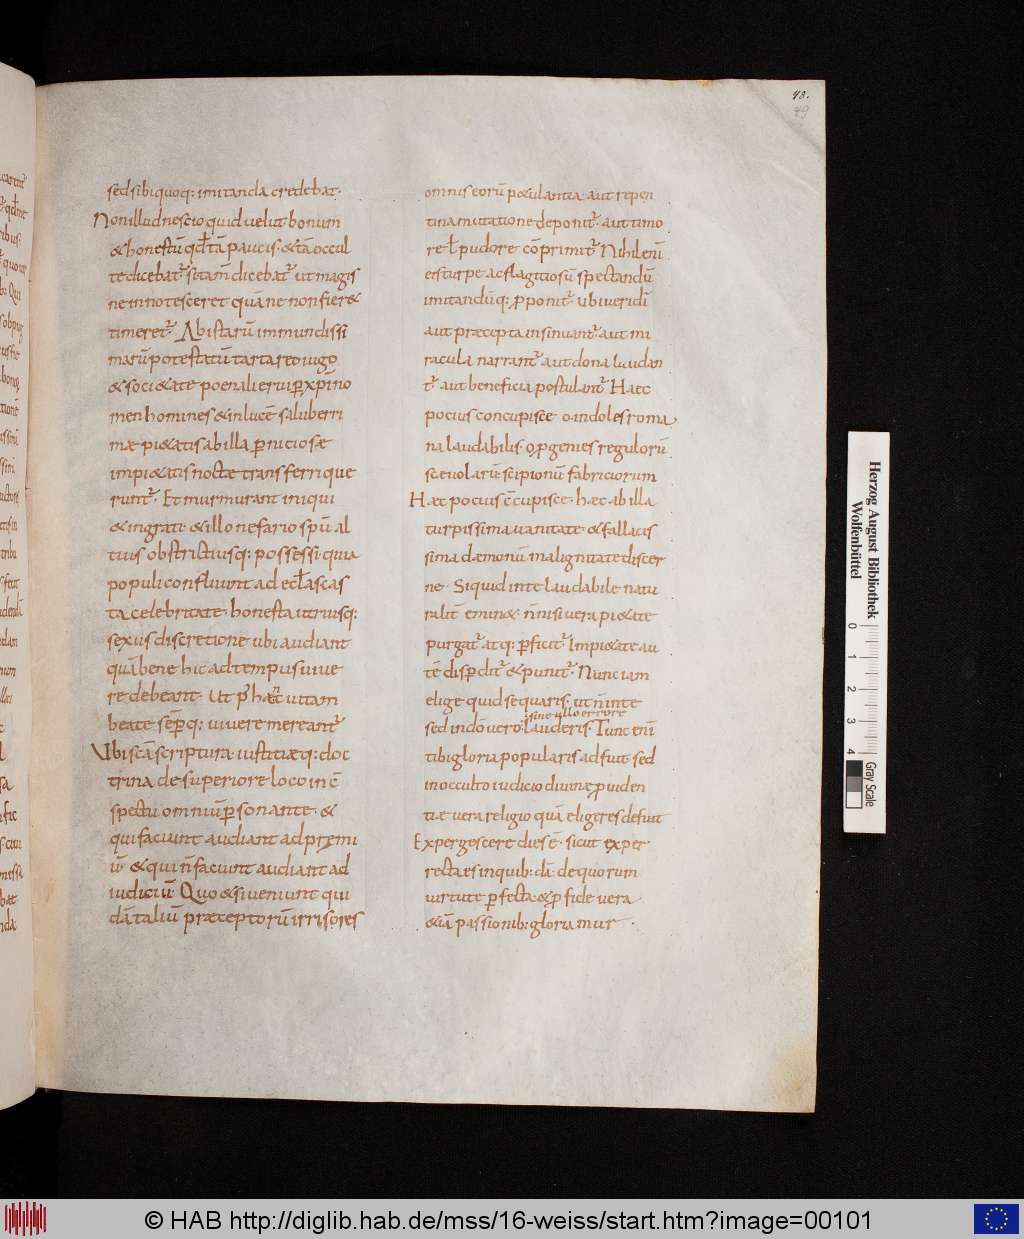 43.
49
sed sibi quoq: imitanda credebat·
Non illud nescio quid uelut bonum
& honestū qd̄ tā paucis· & tā occul
te dicebat᷑ si tam̄ dicebat᷑ ut magis
ne innotesceret quā ne non fier&
timeret᷑. Ab istarū inmundissi
marū potestatū tartareo iugo
& soci&ate poenali erui p̱ xp̄ino
men homines & in lucē saluberri
mæ pi&atis ab illa p̱niciosæ
impi&atis nocte transferri que
runt᷑. Et murmurant iniqui
& ingrati & illo nefario spū al
tius obstrictiusq: possessi quia
populi confluunt ad eccl̄as cas
ta celebritate· honesta utriusq:
sexus discretione ubi audiant
quā bene hic ad tempus uiue
re debeant· Ut p᷑ hæc uitam
beate sēp̱q: uiuere mereant᷑
Ubi sc̄a scriptura iustitiæq: doc
trina de superiore loco in c̄
spectu omniū p̱sonante· &
qui faciunt audiant ad p̱ræmi
ū· & qui n̄ faciunt audiant ad
iudiciū· Quo & si ueniunt qui
dā taliū præceptorū irrisores
omnis eorū p&ulantia aut repen
tina mutatione deponit᷑· aut timo
re ł pudore cōprimit᷑ Nihil enī
eis turpe ac flagitiosū spectandū
imitandūq: ꝓponit᷑ ubi ueri dī
aut præcepta insinuant᷑· aut mi
racula narrant᷑ aut dona laudan
t᷑ aut beneficia postulant᷑ Haec
pocius concupisce o indoles roma
na laudabilis· o ꝓgenies regulorū
sceuolarū scipionū fabriciorum
Hæc pocius c̄cupisce· hæc ab illa
turpissima uanitate & fallacis
sima dæmonū malignitate discer
ne· Si quid in te laudabile natu
ralit̄ emin&· n̄ nisi uera pi&ate
purgat᷑ atq: p̱ficit᷑ Impi&ate au
tē disp̱dit᷑ & punit᷑· Nunc iam
elige quid sequaris· ut n̄ in te
sine ullo errore
sed in dō uero· lauderis· Tunc enī
tibi gloria popularis adfuit sed
in occulto iudicio diuinæ ꝓuiden
tiæ uera religio quā eligeres defuit
Expergescere dies ē· sicut exper
recta es in quib: dā de quorum
uirtute p̱fecta & ꝓ fide uera
&iā passionib: gloriamur·
Herzog August Bibliothek
Wolfenbüttel
0
1
2
3
4
Gray Scale
© HAB http://diglib.hab.de/mss/16-weiss/start.htm?image=00101